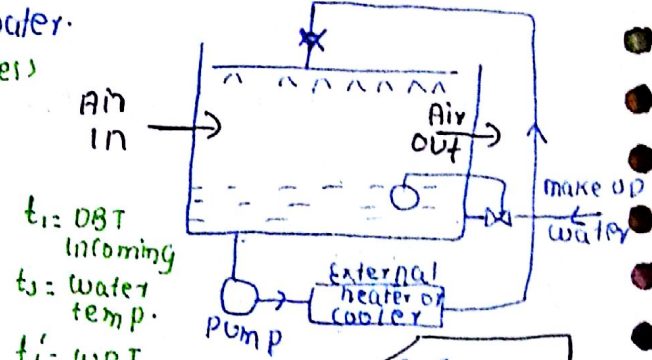 water.
ess)
Air
in
Air
out
make up
water
t₁= DBT
incoming
tₛ= water
temp.
External
heater or
cooler
pump
t₁'= WBT